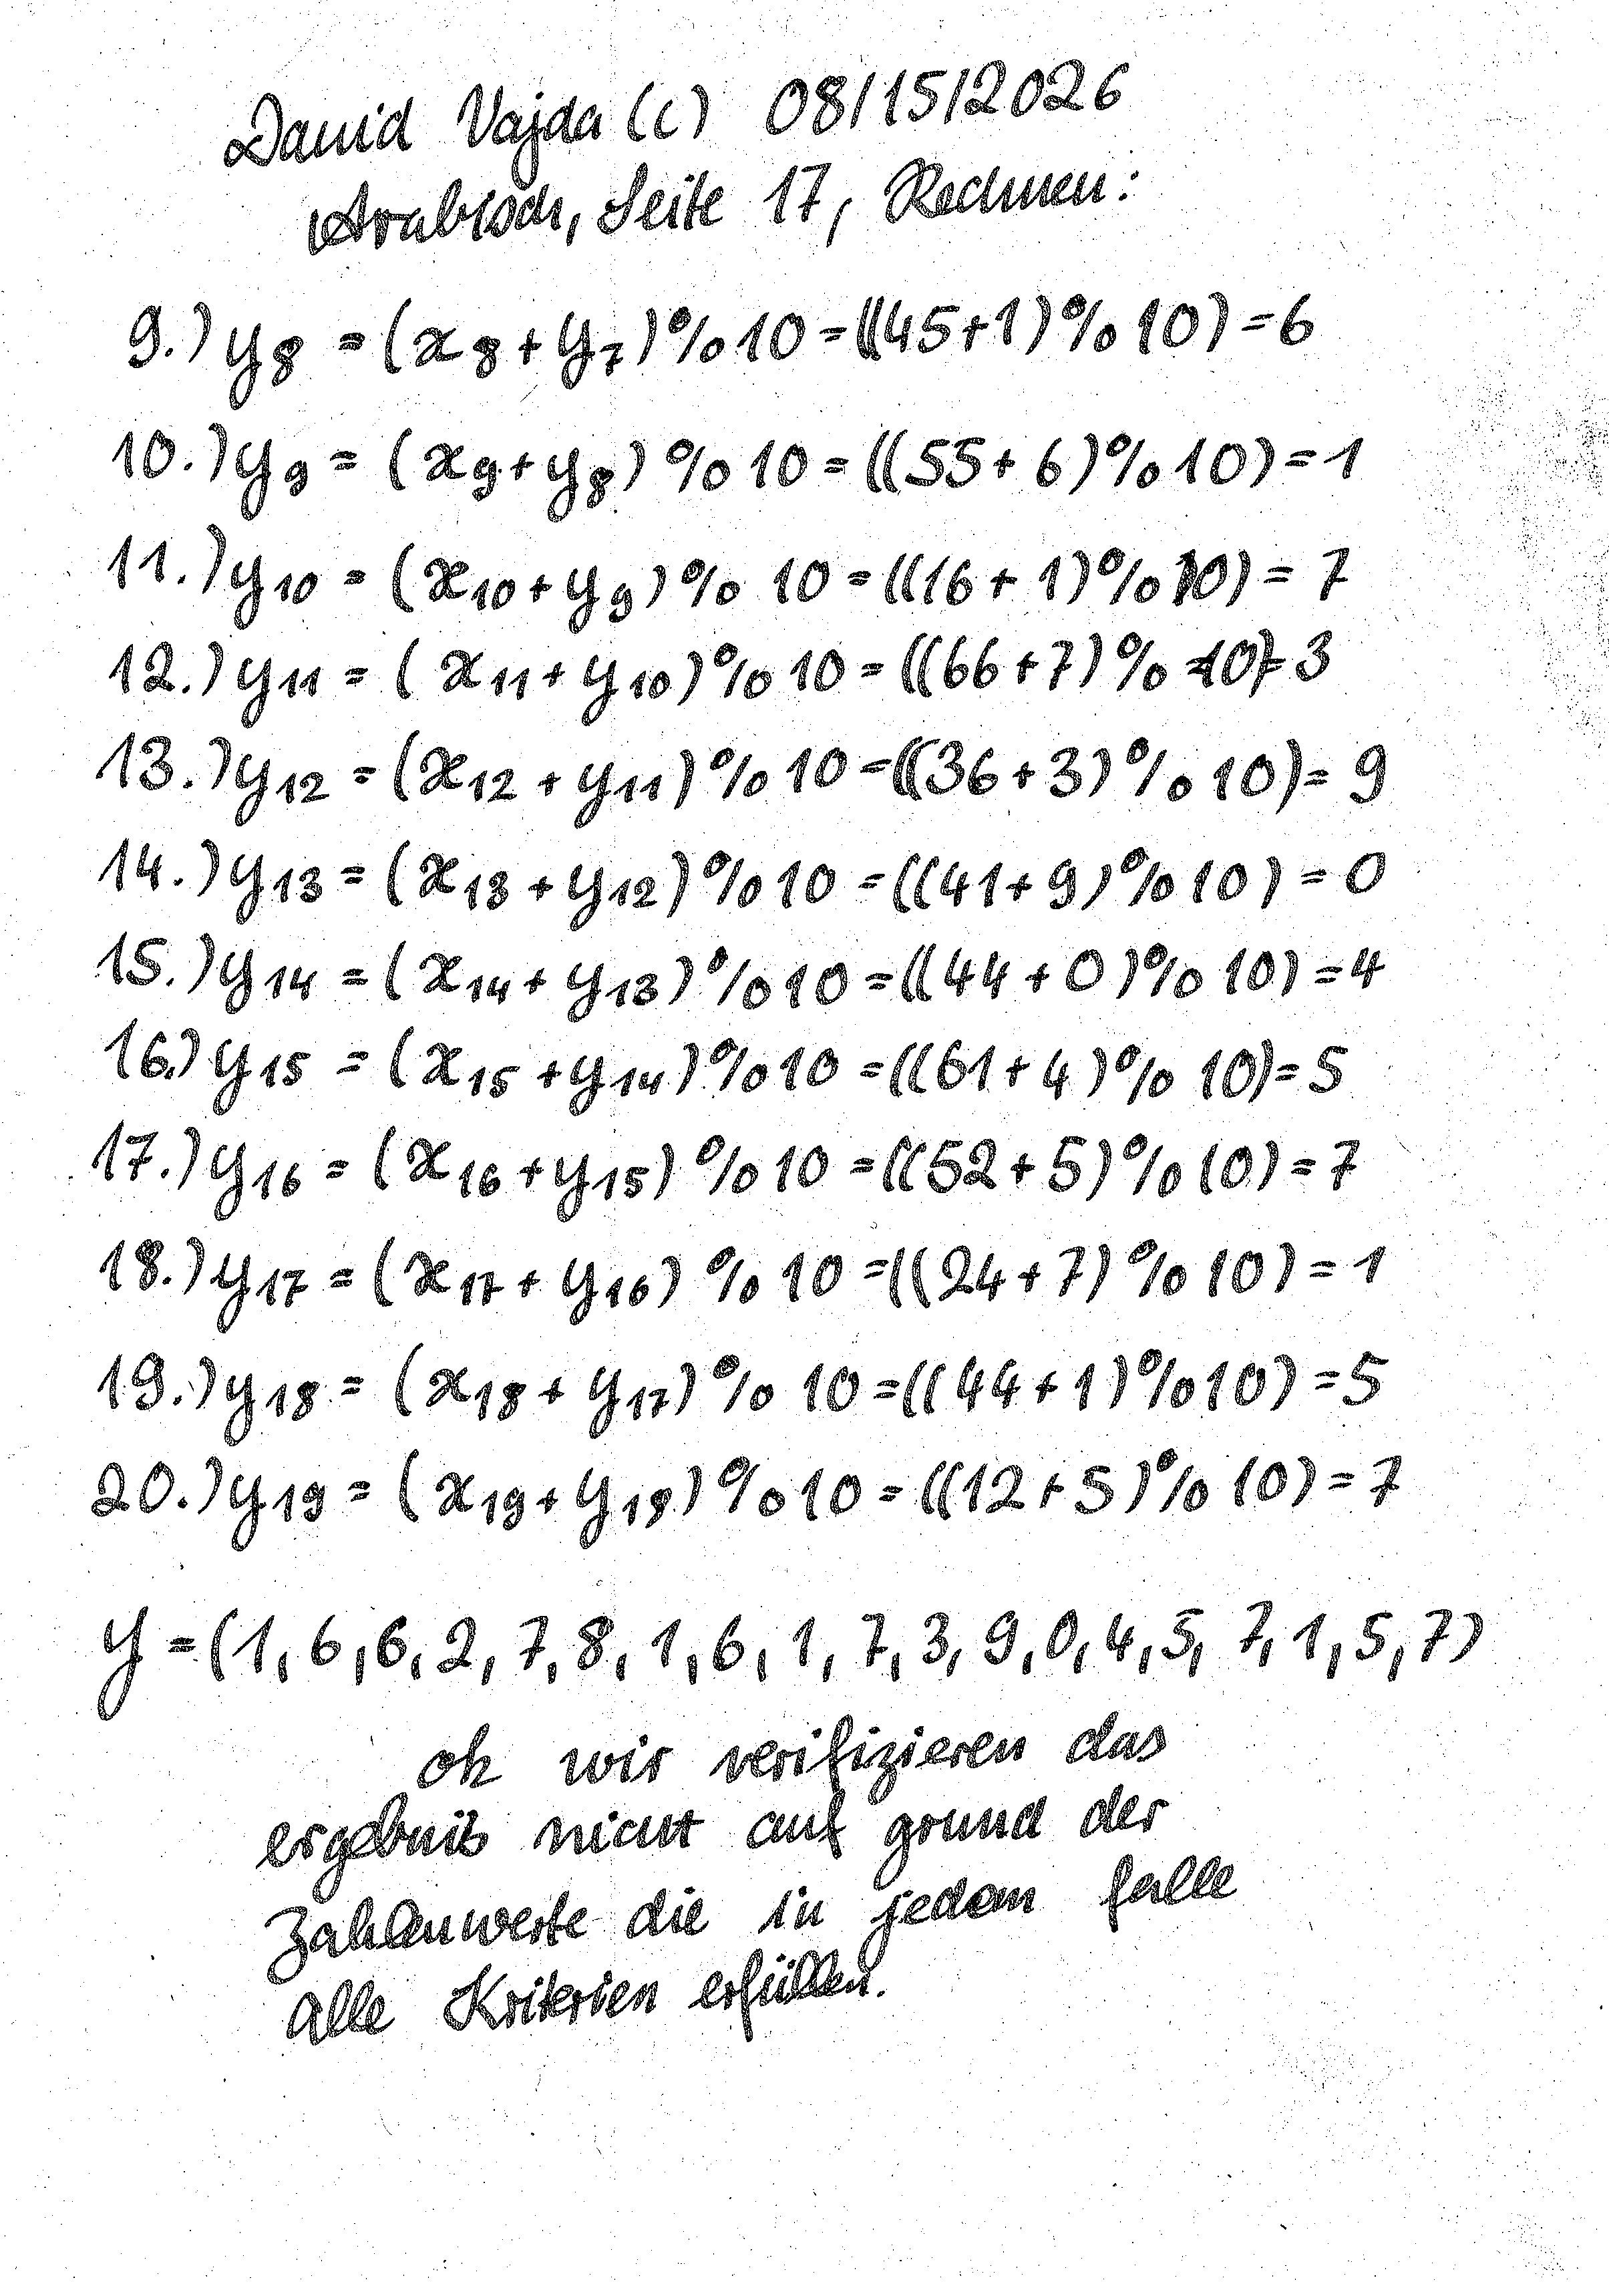 David Vajda (c) 08/15/2026
Arabisch, Seite 17, Rechnen:
9.) y8 = (x8 + y7) % 10 = ((45+1) % 10) = 6
10.) y9 = (x9 + y8) % 10 = ((55 + 6) % 10) = 1
11.) y10 = (x10 + y9) % 10 = ((16 + 1) % 10) = 7
12.) y11 = (x11 + y10) % 10 = ((66 + 7) % 10) = 3
13.) y12 = (x12 + y11) % 10 = ((36 + 3) % 10) = 9
14.) y13 = (x13 + y12) % 10 = ((41 + 9) % 10) = 0
15.) y14 = (x14 + y13) % 10 = ((44 + 0) % 10) = 4
16.) y15 = (x15 + y14) % 10 = ((61 + 4) % 10) = 5
17.) y16 = (x16 + y15) % 10 = ((52 + 5) % 10) = 7
18.) y17 = (x17 + y16) % 10 = ((24 + 7) % 10) = 1
19.) y18 = (x18 + y17) % 10 = ((44 + 1) % 10) = 5
20.) y19 = (x19 + y18) % 10 = ((12 + 5) % 10) = 7
y = (1, 6, 6, 2, 7, 8, 1, 6, 1, 7, 3, 9, 0, 4, 5, 7, 1, 5, 7)
ok wir verifizieren das
ergebnis nicht auf grund der
Zahlenwerte die in jedem falle
alle Kriterien erfüllen.